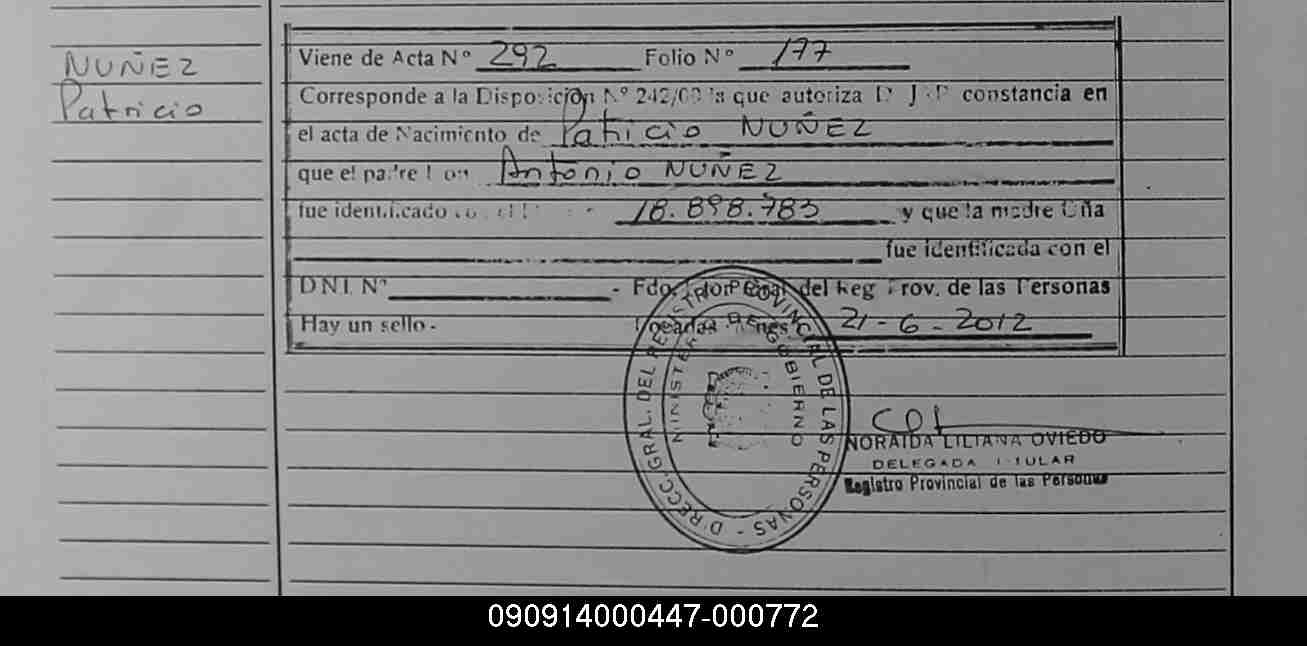 NUÑEZ
Patricio
Viene de Acta N° 292 Folio N° 177
Corresponde a la Disposición N° 242/00 la que autoriza D J P constancia en
el acta de Nacimiento de Patricio NUÑEZ
que el padre Don Antonio NUÑEZ
fue identificado con el 18.898.783 y que la madre Dña
fue identificada con el
DNI. N° - Fdo. Prov. de las Personas
Hay un sello - 21-6-2012
DIRECC. GRAL. DEL REGISTRO PROVINCIAL DE LAS PERSONAS -
MINISTERIO DE GOBIERNO
NORAIDA LILIANA OVIEDO
DELEGADA TITULAR
Registro Provincial de las Personas
090914000447-000772